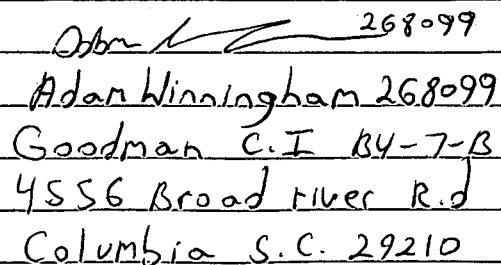 268099
Adam Winningham 268099
Goodman C.I B4-7-B
4556 Broad river R.d
Columbia S.C. 29210